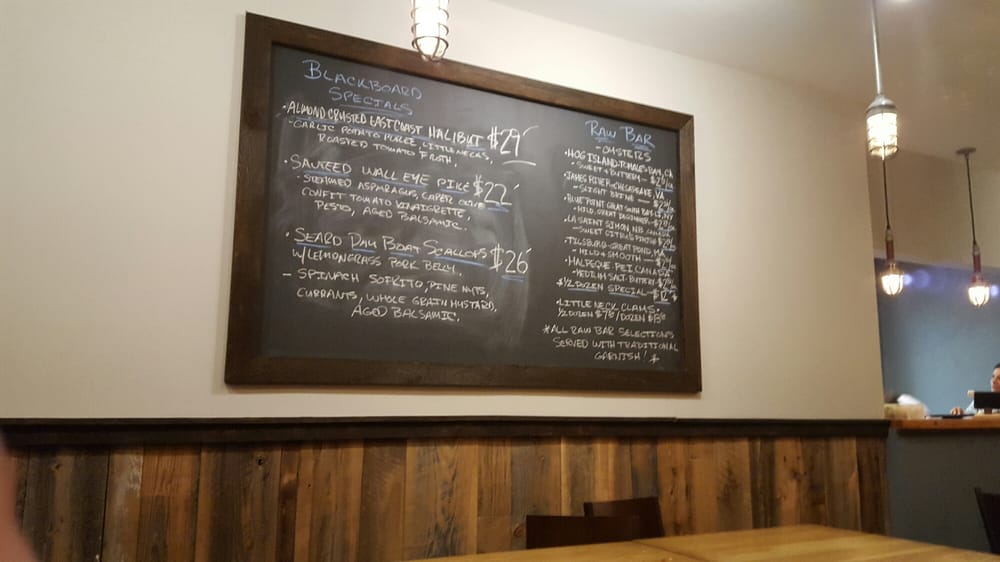 BLACKBOARD
SPECIALS
•ALMOND CRUSTED EAST COAST HALIBUT $29
-GARLIC POTATO PUREE, LITTLENECKS,
ROASTED TOMATO FROTH.
•SAUTEED WALLEYE PIKE $22
-STEMMED ASPARAGUS, CAPER OLIVE
CONFIT TOMATO VINAIGRETTE,
PESTO, AGED BALSAMIC.
•SEARD DAY BOAT SCALLOPS $26
W/LEMONGRASS PORK BELLY,
- SPINACH SOFRITO, PINE NUTS,
CURRANTS, WHOLE GRAIN MUSTARD,
AGED BALSAMIC.
RAW BAR
-OYSTERS
•HOG ISLAND-TOMALES BAY, CA
-SWEET & BUTTERY-
•JAMES RIVER-CHESAPEAKE, VA
-SLIGHT BRINE-
•BLUE POINT GREAT SOUTH BAY, NY
-MILD, GREAT BEGINNER-
•LA SAINT SIMON N.B. CANADA
-SWEET CITRUS FINISH
•TILSBURY-GREAT POND, MA
-MILD & SMOOTH-
•MALPEQUE-PEI CANADA
-MEDIUM SALT, BUTTERY-
*1/2 DOZEN SPECIAL-$12
•LITTLE NECK CLAMS.
1/2 DOZEN /DOZEN
*ALL RAW BAR SELECTIONS
SERVED WITH TRADITIONAL
GARNISH! *